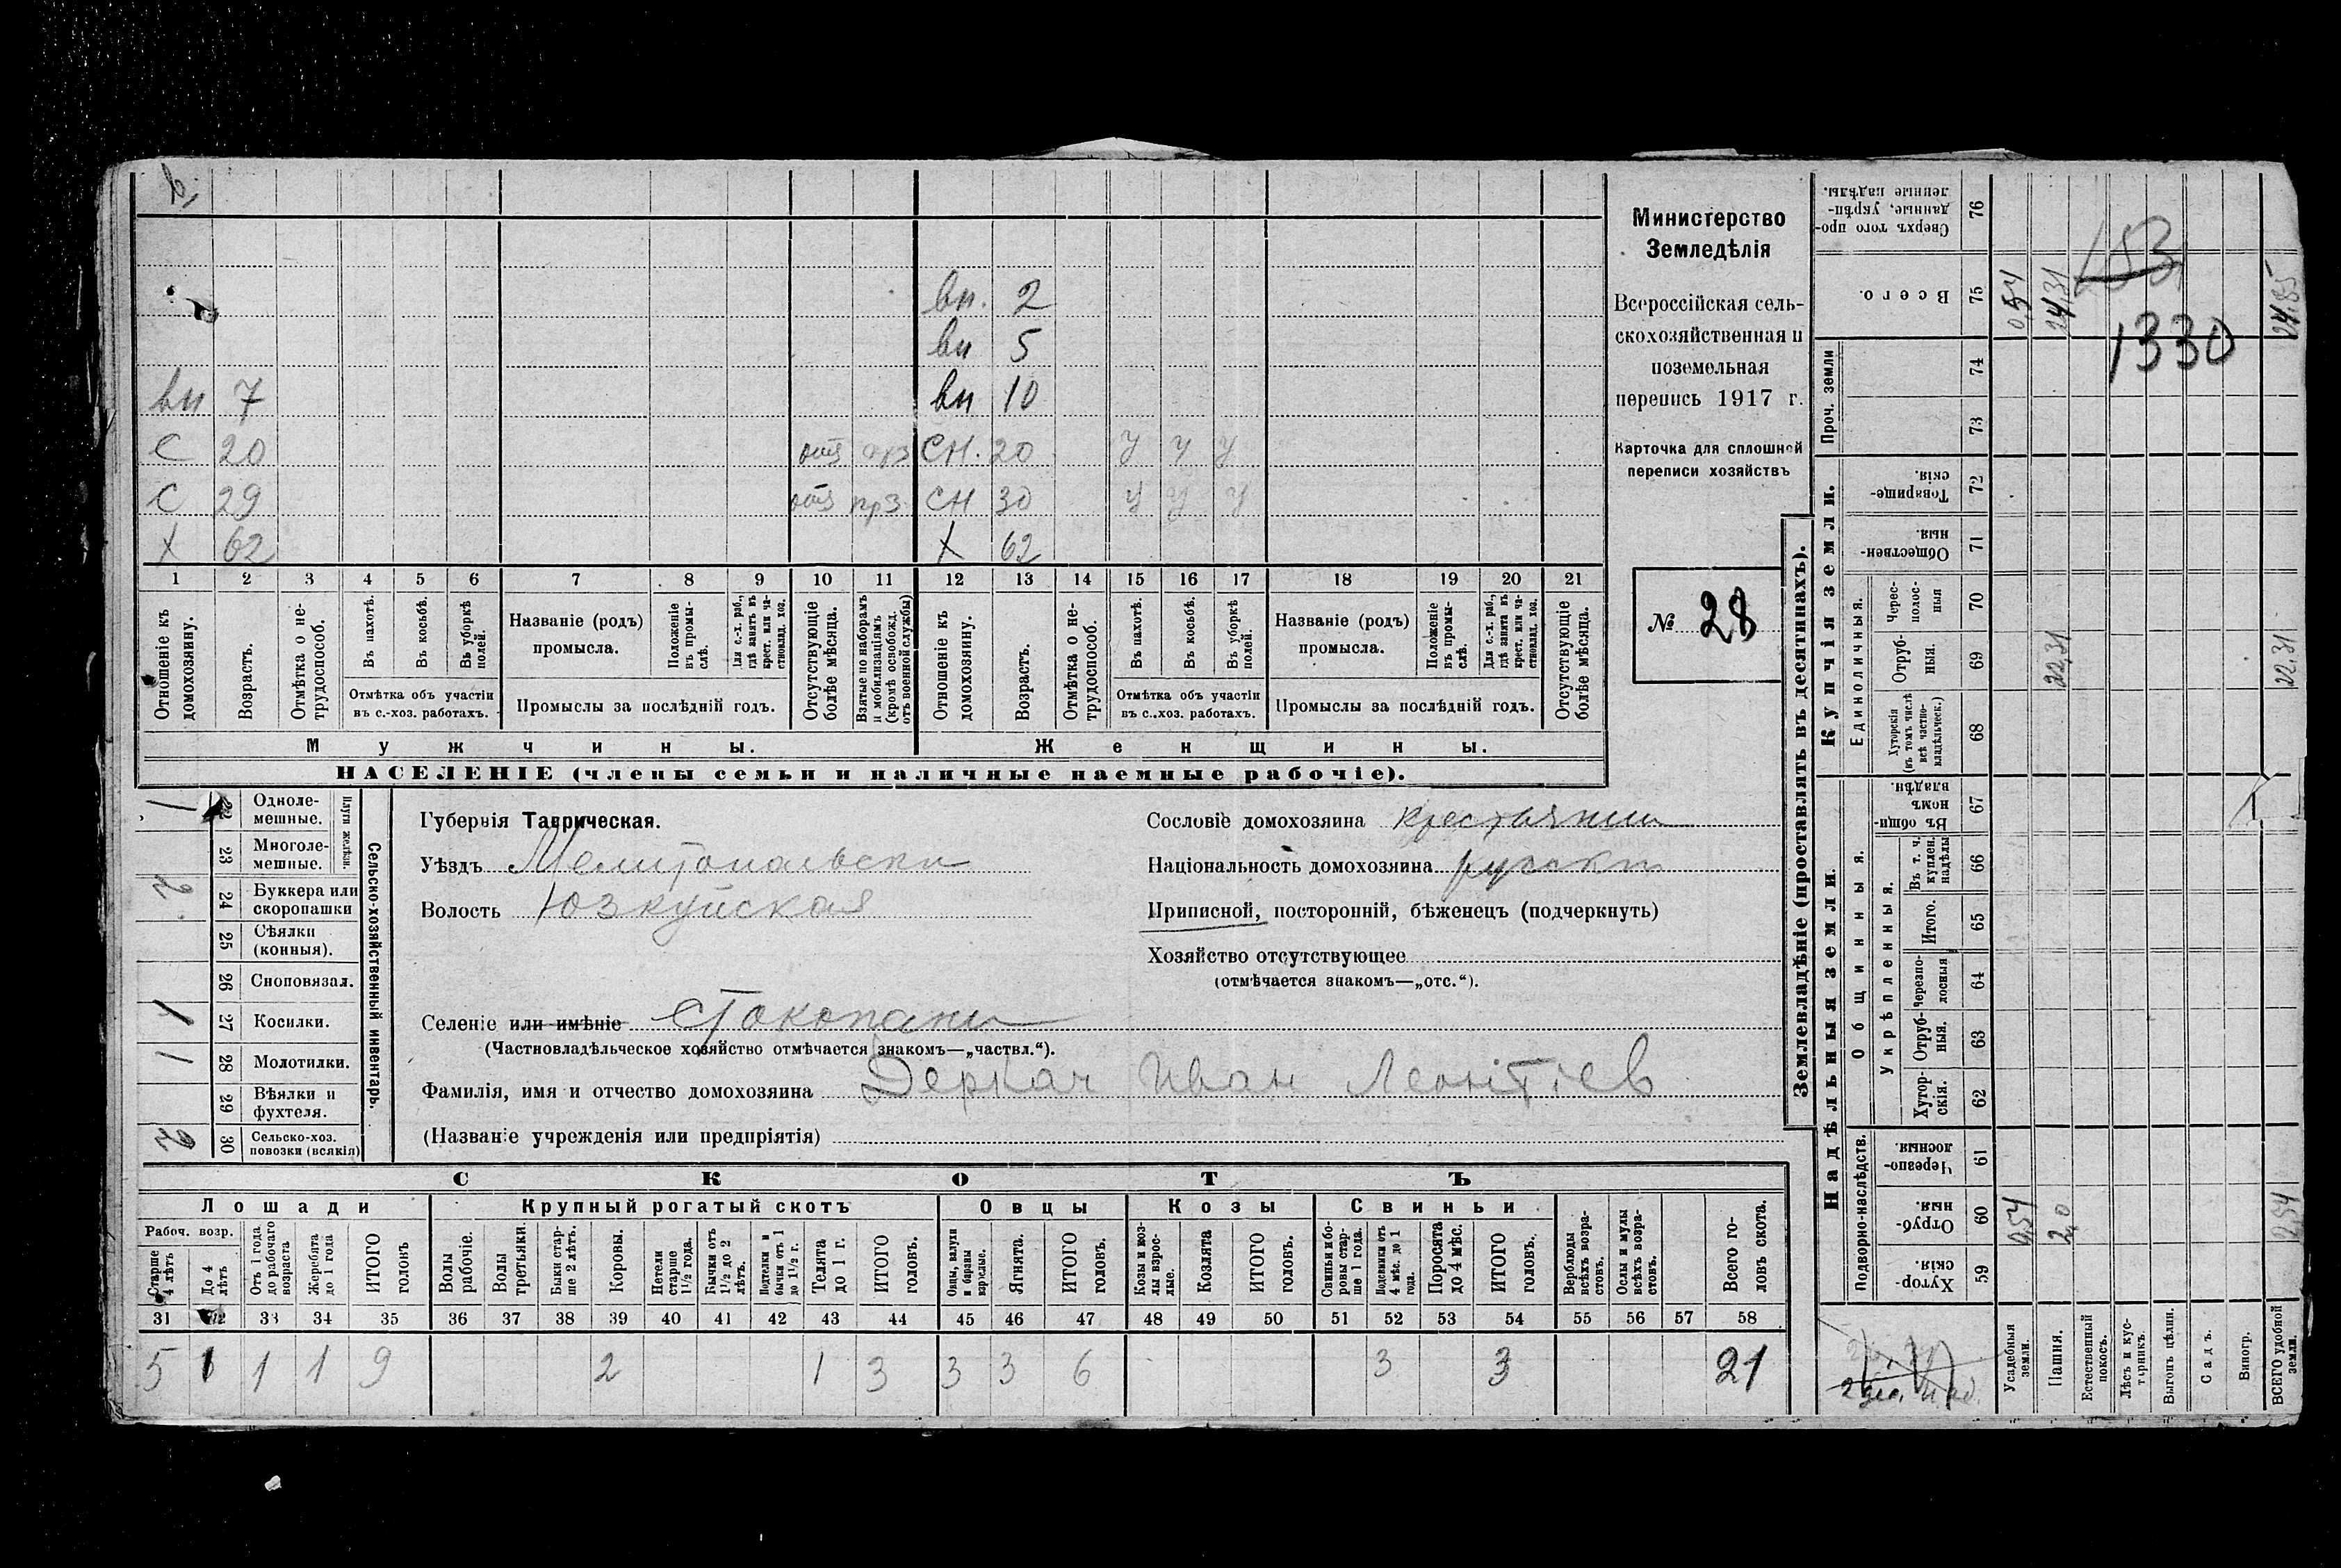 вн. 2
вн 5
вн 7 вн 10
С 20 отс СН. 20 У У У
С 29 отс прз СН 30 У У У
Х 62 Х 62
1 2 3 4 5 6 7 8 9 10 11 12 13 14 15 16 17 18 19 20 21
Отношеніе къ домохозяину.
Возрастъ.
Отмѣтка о не-трудоспособ.
Въ пахотѣ.
Въ косьбѣ.
Въ уборкѣ полей.
Отмѣтка объ участіи
въ с.-хоз. работахъ.
Названіе (родъ)
промысла.
Положеніе въ промы-слѣ.
Для с.-х. раб., гдѣ занятъ въ крест. или ча-стновлад. хоз.
Промыслы за послѣдній годъ.
Отсутствующіе болѣе мѣсяца.
Взятые по наборамъ и мобилизаціямъ (кромѣ освобожд. отъ военной службы)
Отношеніе къ домохозяину.
Возрастъ.
Отмѣтка о не-трудоспособ.
Въ пахотѣ.
Въ косьбѣ.
Въ уборкѣ полей.
Отмѣтка объ участіи
въ с.-хоз. работахъ.
Названіе (родъ)
промысла.
Положеніе въ промы-слѣ.
Для с.-х. раб., гдѣ занята въ крест. или ча-стновлад. хоз.
Промыслы за послѣдній годъ.
Отсутствующіе болѣе мѣсяца.
Мужчины. Женщины.
НАСЕЛЕНІЕ (члены семьи и наличные наемные рабочіе).
Министерство
Земледѣлія
Всероссійская сель-
скохозяйственная и
поземельная
перепись 1917 г.
Карточка для сплошной
переписи хозяйствъ
№ 28
Сельско-хозяйственный инвентарь.
Плуги желѣзн.
1 22 Одноле-
мешные.
23 Многоле-
мешные.
2 24 Буккера или
скоропашки
25 Сѣялки
(конныя).
26 Сноповязал.
1 27 Косилки.
1 28 Молотилки.
29 Вѣялки и
фухтеля.
2 30 Сельско-хоз.
повозки (всякія)
Губернія Таврическая.
Уѣздъ Мелитопольски
Волость Юзкуйская
Сословіе домохозяина крестьянин
Національность домохозяина русски
Приписной, посторонній, бѣженецъ (подчеркнуть)
Хозяйство отсутствующее
(отмѣчается знакомъ—„отс.“).
Селеніе или имѣніе Стокопани
(Частновладѣльческое хозяйство отмѣчается знакомъ—„частвл.“).
Фамилія, имя и отчество домохозяина Деркач Иван Леонтіев
(Названіе учрежденія или предпріятія)
СКОТЪ
Лошади Крупный рогатый скотъ Овцы Козы Свиньи
Рабоч. возр.
Старше 4 лѣтъ
До 4 лѣтъ
Отъ 1 года до рабочаго возраста
Жеребята до 1 года
ИТОГО головъ
Волы рабочіе.
Волы третьяки.
Быки стар-ше 2 лѣтъ.
Коровы.
Нетели старше 1½ года.
Бычки отъ 1½ до 2 лѣтъ.
Подтелки и бычки отъ 1 до 1½ г.
Телята до 1 г.
ИТОГО головъ.
Овцы, валухи и бараны взрослые.
Ягнята.
ИТОГО головъ.
Козы и коз-лы взрос-лые.
Козлята
ИТОГО головъ.
Свиньи и бо-ровы стар-ше 1 года.
Подсвинки отъ 4 мѣс. до 1 года.
Поросята до 4 мѣс.
ИТОГО головъ.
Верблюды всѣхъ возра-стовъ.
Ослы и мулы всѣхъ возра-стовъ.
Всего го-ловъ скота.
31 32 33 34 35 36 37 38 39 40 41 42 43 44 45 46 47 48 49 50 51 52 53 54 55 56 57 58
5 1 1 1 9 2 1 3 3 3 6 3 3 21
Землевладѣніе (проставлять въ десятинахъ).
Надѣльныя земли.
Подворно-наслѣдств.
Хутор-скія. 59
Отруб-ныя. 60 0,54 2,0 2,54
Черезпо-лосныя 61
Общинныя.
Укрѣпленныя.
Хутор-скія. 62
Отруб-ныя. 63
Черезпо-лосныя 64
Итого. 65
Въ т. ч. куплен. надѣлы 66
Въ общин-номъ владѣн. 67
Купчія земли.
Единоличныя.
Хуторскія (въ томъ числѣ всѣ частно-владѣльческ.) 68
Отруб-ныя. 69 22,31 22,31
Черес-полос-ныя 70
Обществен-ныя. 71
Товарище-скія. 72
Проч. земли
73
74
Всего. 75 0,54 24,31 24,85
Сверхъ того про-данные, укрѣп-ленные надѣлы. 76
153
1330
Усадебныя земли.
Пашня.
Естественный покосъ.
Лѣсъ и кус-тарникъ.
Выгонъ цѣлин.
Садъ.
Виногр.
ВСЕГО удобной земли.